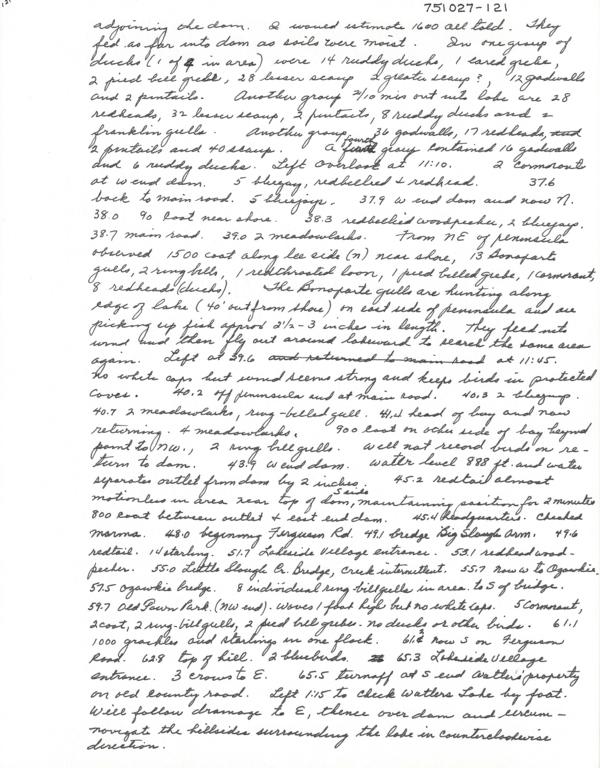 751027-121
adjoining the dam. I would estimate 1600 all told. They
fed as far into dam as soils were moist. In one group of
ducks (1 of 4 in area) were 14 ruddy ducks, 1 eared grebe,
2 pied bill grebe, 28 lesser scaup 2 greater scaup?, 12 gadwalls
and 2 pintails. Another group 2/10 mi out into lake are 28
redheads, 32 lesser scaup, 2 pintails, 8 ruddy ducks and 2
franklin gulls. Another group, 36 gadwalls, 17 redheads, and
2 pintails and 40 scaup. A fourth group contained 16 gadwalls
and 6 ruddy ducks. Left overlook at 11:10. 2 cormorant
at W end dam. 5 bluejay, redbellied + redhead. 37.6
back to main road. 5 bluejays. 37.9 W end dam and now N.
38.0 90 coot near shore. 38.3 redbellied woodpecker, 2 bluejays.
38.7 main road. 39.0 2 meadowlarks. From NE of peninsula
observed 1500 coot along lee side (n) near shore, 13 Bonaparte
gulls, 2 ring bills, 1 redthroated loon, 1 pied billed grebe, 1 cormorant,
8 redhead (ducks). The Bonaparte gulls are hunting along
edge of lake (40' out from shore) on east side of peninsula and are
picking up fish approx 2 1/2 - 3 inches in length. They feed into
wind and then fly out around lakeward to search the same area
again. Left at 39.6 and returned to main road at 11:45.
No white caps but wind seems strong and keeps birds in protected
coves. 40.2 off peninsula and at main road. 40.3 2 bluejays.
40.7 2 meadowlarks, ring-billed gull. 41.4 head of bay and now
returning. 4 meadowlarks. 900 coot on other side of bay beyond
point to NW., 2 ring bill gulls. Will not record birds on re-
turn to dam. 43.9 W end dam. Water level 888 ft. and water
separates outlet from dam by 2 inches. 45.2 redtail almost
motionless in area near top of dam, S side, maintaining position for 2 minutes
800 coot between outlet & east end dam. 45.4 headquarters. Checked
marina. 48.0 beginning Ferguson Rd. 49.1 bridge Big Slough Arm. 49.6
redtail. 14 starling. 51.7 Lakeside Village entrance. 53.1 redhead wood-
pecker. 55.0 Little Slough Cr. Bridge, creek intermittent. 55.7 now W to Ozawkie.
57.5 Ozawkie bridge. 8 individual ring bill gulls in area to S of bridge.
59.7 Old Town Park. (NW end). Waves 1 foot high but no white caps. 5 cormorant,
2 coot, 2 ring-bill gulls, 2 pied bill grebes. no ducks or other birds. 61.1
1000 grackles and starlings in one flock. 61.2 now S on Ferguson
Road. 62.8 top of hill. 2 bluebirds. 65.3 Lakeside Village
entrance. 3 crows to E. 65.5 turnoff at S end Watler's property
on old county road. Left 1:15 to check Watlers Lake by foot.
Will follow drainage to E, thence over dam and circum-
navigate the hillsides surrounding the lake in counterclockwise
direction.